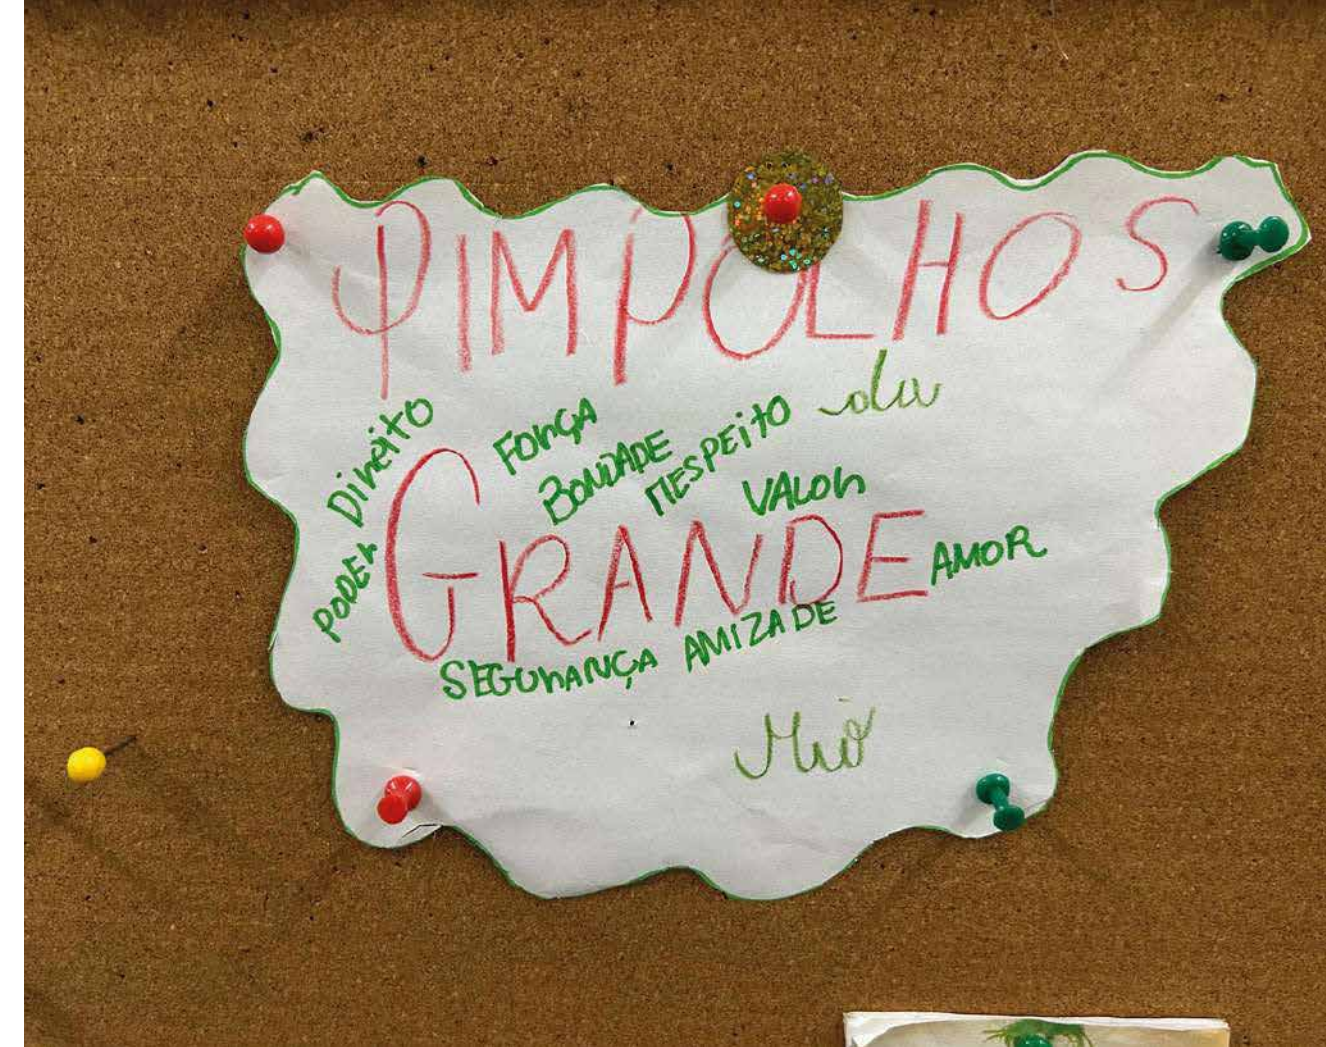 PIMPOLHOS
da
Direito
FORÇA
BONDADE
RESPEITO
VALOR
PODER
GRANDE
AMOR
SEGURANÇA AMIZADE
Rio